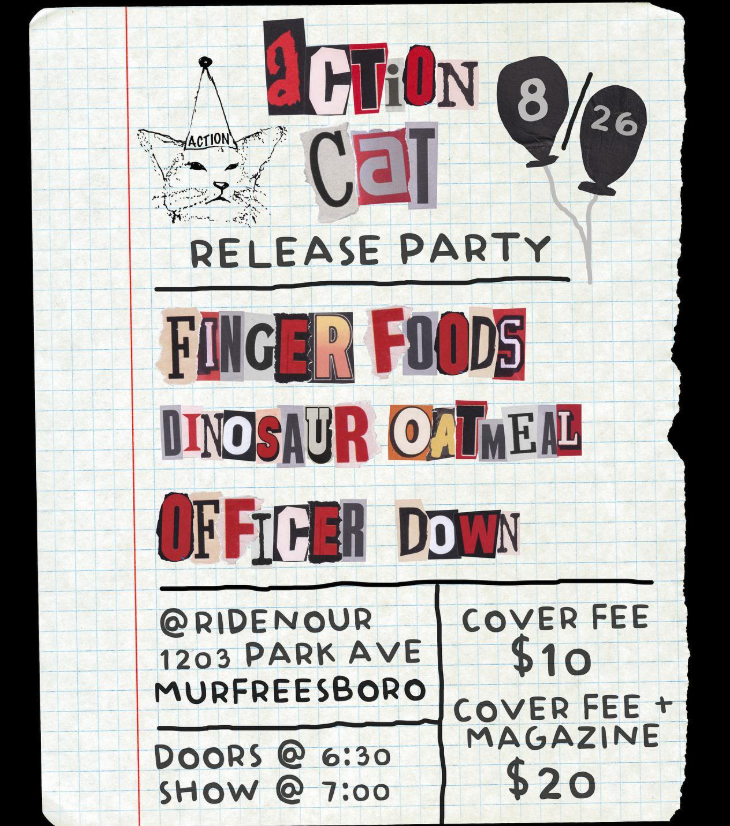 ACTiON
Cat
ACTION
8/26
RELEASE PARTY
FINGER FOODS
DINOSAUR OATMEAL
OFFICER DOWN
@RIDENOUR
1203 PARK AVE
MURFREESBORO
DOORS @ 6:30
SHOW @ 7:00
COVER FEE
$10
COVER FEE +
MAGAZINE
$20